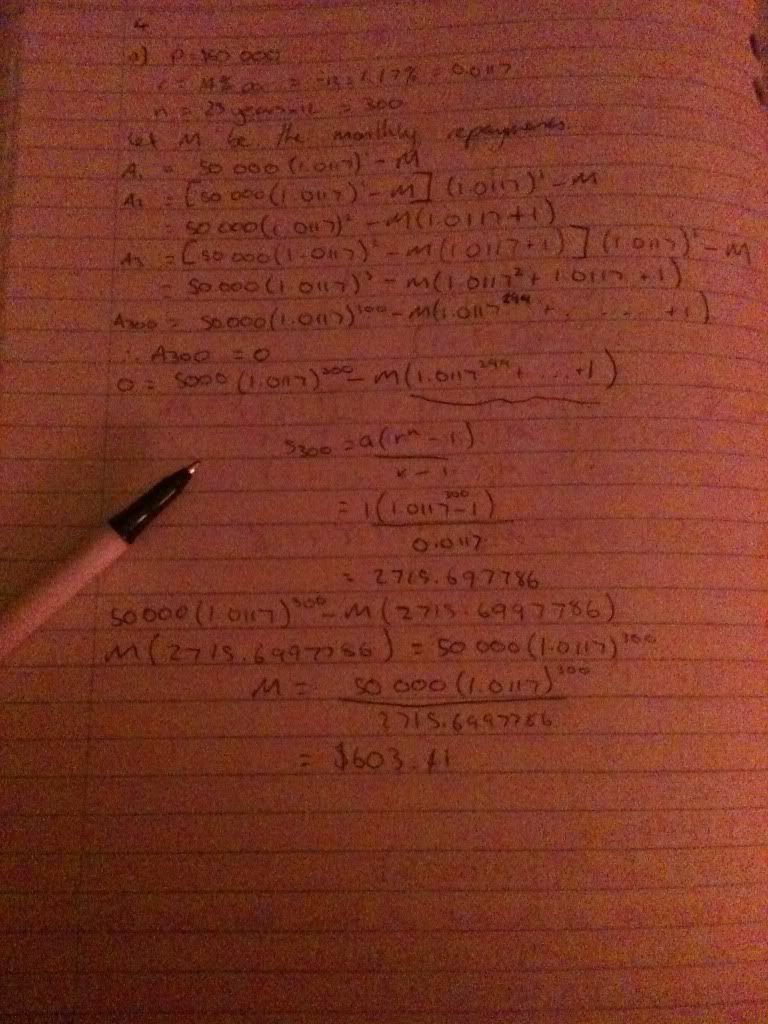 4
a) P = 50 000
r = 14% pa ÷ 12 = 1.17% = 0.0117
n = 25 years × 12 = 300
Let M be the monthly repayments.
A₁ = 50 000 (1.0117)¹ - M
A₂ = [50 000 (1.0117)¹ - M] (1.0117)¹ - M
= 50 000 (1.0117)² - M (1.0117 + 1)
A₃ = [50 000 (1.0117)² - M (1.0117 + 1)] (1.0117)¹ - M
= 50 000 (1.0117)³ - M (1.0117² + 1.0117 + 1)
A₃₀₀ = 50 000 (1.0117)³⁰⁰ - M (1.0117²⁹⁹ + ....... + 1)
∴ A₃₀₀ = 0
0 = 5000 (1.0117)³⁰⁰ - M (1.0117²⁹⁹ + ... + 1)
S₃₀₀ = a(rⁿ - 1) / r - 1
= 1(1.0117³⁰⁰ - 1) / 0.0117
= 2715.697786
50 000 (1.0117)³⁰⁰ - M (2715.6997786)
M (2715.6997786) = 50 000 (1.0117)³⁰⁰
M = 50 000 (1.0117)³⁰⁰ / 2715.6997786
= $603.41